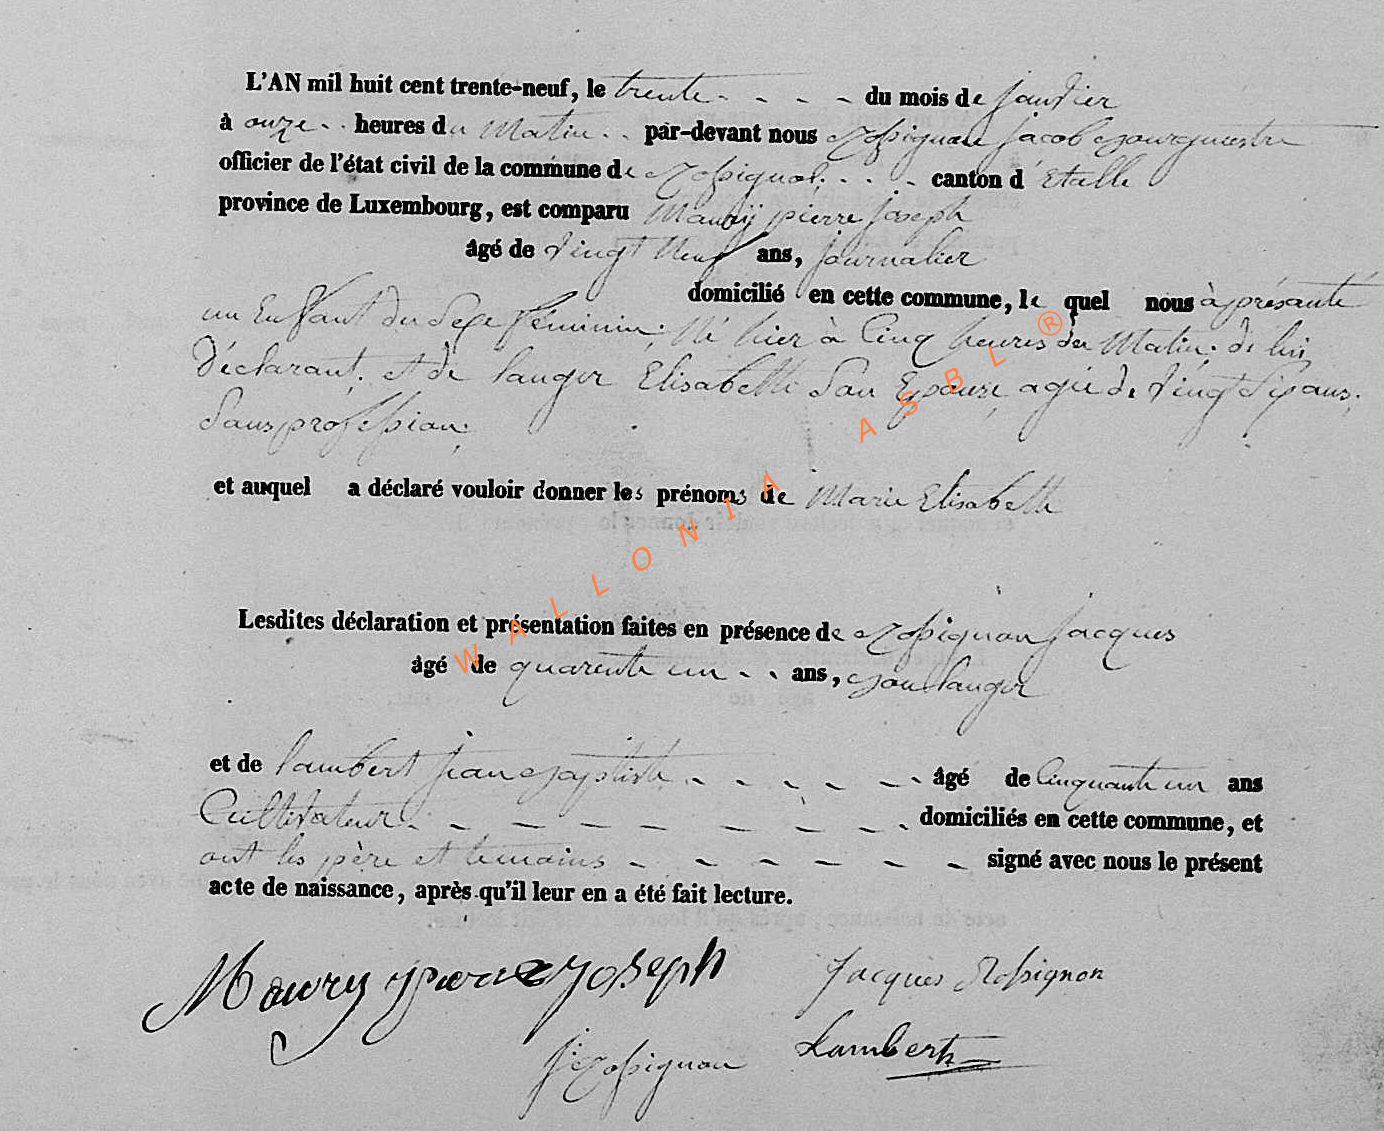 L'AN mil huit cent trente-neuf, le trente - - - - du mois de janvier
à onze - - heures du Matin - - par-devant nous Rossignon jacob Bourguestre
officier de l'état civil de la commune de Rossignol - - - canton d'Etalle
province de Luxembourg, est comparu Maury pierre joseph
âgé de vingt neuf ans, journalier
domicilié en cette commune, le quel nous à présanté
un Enfant du Sexe féminin; Né hier à Cinq heures du Matin; de lui
Déclarant; et de langer Elisabette Son Epouse agée de vingt Six ans;
Sans profession;
et auquel a déclaré vouloir donner les prénoms de Marie Elisabette
Lesdites déclaration et présentation faites en présence de Rossignon jacques
âgé de quarente un - - ans, Boulanger
et de lambert jean Baptiste - - - - - - âgé de Cinquante un ans
Cultivateur - - - - - - - - - domiciliés en cette commune, et
ont les père et temoins - - - - - - signé avec nous le présent
acte de naissance, après qu'il leur en a été fait lecture.
Maury pierre joseph Jacques Rossignon
J Rossignon Lambert
WALLONIA ASBL ®